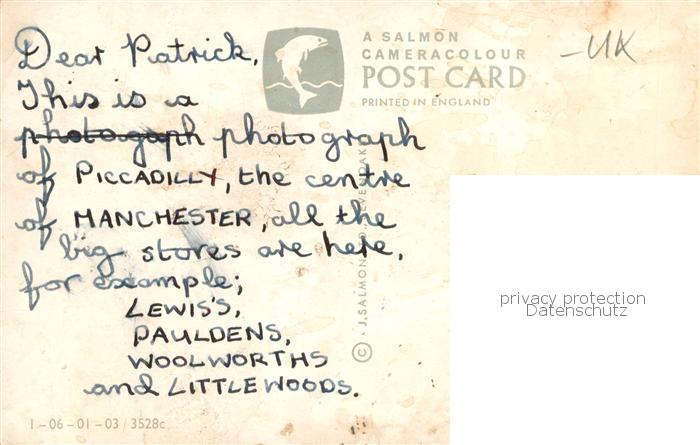 Dear Patrick,
This is a
photogaph photograph
of PICCADILLY, the centre
of MANCHESTER, all the
big stores are here,
for example;
LEWIS'S,
PAULDENS,
WOOLWORTHS
and LITTLEWOODS.
A SALMON
CAMERACOLOUR
POST CARD
PRINTED IN ENGLAND
-UK
© J. SALMON
privacy protection
Datenschutz
1-06-01-03/3528c